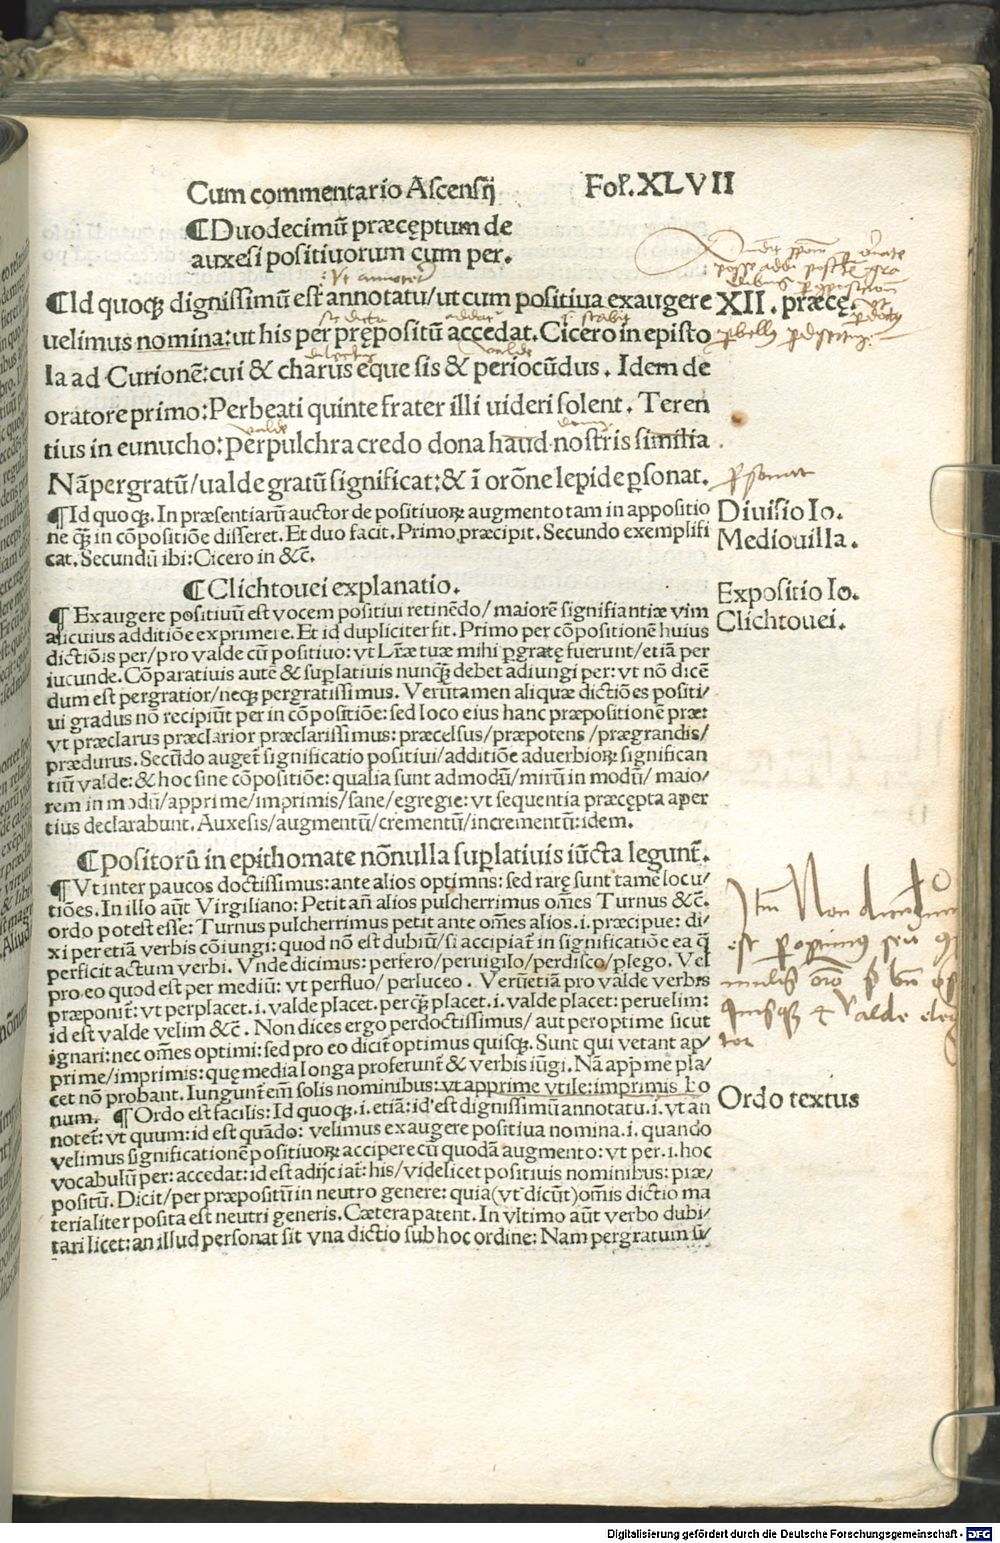 Cum commentario Ascensij Fol. XLVII
¶Duodecimū præcęptum de
auxesi positiuorum cum per.
¶Id quoqꝫ dignissimū est annotatu/ut cum positiua exaugere XII. præcę.
uelimus nomina:ut his per prępositū accedat. Cicero in episto
la ad Curionē:cui & charus eque sis & periocūdus. Idem de
oratore primo:Perbeati quinte frater illi uideri solent. Teren
tius in eunucho:Perpulchra credo dona haud nostris similia.
Nā pergratū/ualde gratū significat:& ī orōne lepide ꝑsonat.
ꝑsonat
¶Id quoqꝫ. In præsentiarū auctor de positiuoꝝ augmento tam in appositio
ne qꝫ̄ in cōpositiōe disseret. Et duo facit. Primo præcipit. Secundo exemplifi
cat. Secundū ibi:Cicero in &c̄.
Diuisio Io.
Mediouilla.
¶Clichtouei explanatio.
Expositio Io.
Clichtouei.
¶Exaugere positiuū est vocem positiui retinēdo/maiorē signifiantiæ vim
alicuius additiōe exprimere. Et id dupliciter fit. Primo per cōpositionē huius
dictiōis per/pro valde cū positiuo: vt Lr̄æ tuæ mihi ꝑgratę fuerunt/etiā per
iucunde. Cōparatiuis autē & suꝑlatiuis nunqꝫ̄ debet adiungi per: vt nō dicē
dum est pergratior/neqꝫ pergratissimus. Verūtamen aliquæ dictiōes positi/
ui gradus nō recipiūt per in cōpositiōe: sed loco eius hanc præpositionē præ:
vt præclarus præclarior præclarissimus: præcelsus/præpotens/prægrandis/
prædurus. Secūdo auget̄ significatio positiui/additiōe aduerbioꝝ significan
tiū valde: & hoc sine cōpositiōe: qualia sunt admodū/mirū in modū/maio/
rem in modū/apprime/imprimis/sane/egregie: vt sequentia præcępta aper
tius declarabunt. Auxesis/augmentū/crementū/incrementū: idem.
¶positorū in epithomate nōnulla suꝑlatiuis iūcta legunt̄.
¶Vt inter paucos doctissimus: ante alios optimns: sed rarę sunt tamē locu/
tiōes. In illo aūt Virgiliano: Petit an̄ alios pulcherrimus om̄es Turnus &c̄.
ordo potest esse: Turnus pulcherrimus petit ante om̄es alios. i. præcipue: di/
xi per etiā verbis cōiungi: quod nō est dubiū/si accipiat̄ in significatiōe ea q̄
perficit actum verbi. Vnde dicimus: perfero/peruigilo/perdisco/ꝑlego. Vel
pro eo quod est per mediū: vt perfluo/perluceo. Verūetiā pro valde verbis
præponit̄: vt perplacet. i. valde placet. per qꝫ̄ placet. i. valde placet: peruelim:
id est valde velim &c̄. Non dices ergo perdoctissimus/aut peroptime sicut
ignari: nec om̄es optimi: sed pro eo dicit̄ optimus quisqꝫ. Sunt qui vetant ap/
prime/imprimis: quę media longa proferunt̄ & verbis iūgi. Nā appme pla/
cet nō probant. Iungunt̄ em̄ solis nominibus: vt apprime vtile: imprimis bo
num. ¶Ordo est facilis: Id quoqꝫ. i. etiā: id est dignissimū annotatu. i. vt an
notet̄: vt quum: id est quādo: velimus exaugere positiua nomina. i. quando
velimus significationē positiuoꝝ accipere cū quodā augmento: vt per. i. hoc
vocabulū per: accedat: id est adijciat̄: his/videlicet positiuis nominibus: præ/
positū. Dicit/per præpositū in neutro genere: quia(vt dicūt)om̄is dictio ma
terialiter posita est neutri generis. Cætera patent. In vltimo aūt verbo dubi/
tari licet: an illud personat sit vna dictio sub hoc ordine: Nam pergratum si/
Ordo textus
Digitalisierung gefördert durch die Deutsche Forschungsgemeinschaft - DFG